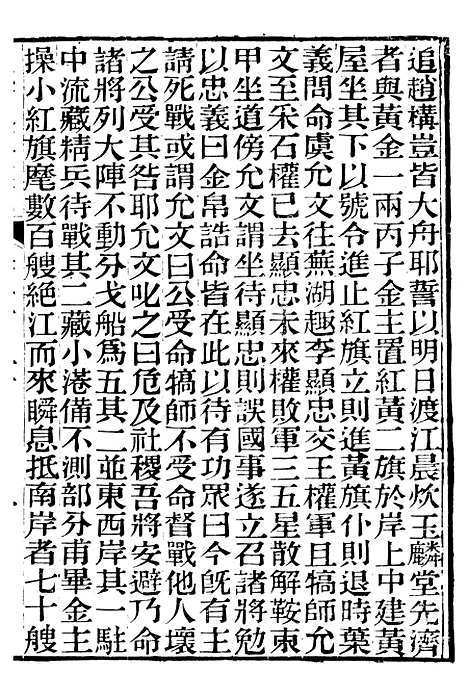 追趙構豈皆大舟耶誓以明日渡江晨炊玉麟堂先濟
者與黃金一兩丙子金主置紅黃二旗於岸上中建黃
屋坐其下以號令進止紅旗立則進黃旗仆則退時葉
義問命虞允文往蕪湖趣李顯忠交王權軍且犒師允
文至采石權已去顯忠未來權敗軍三五星散解鞍束
甲坐道傍允文謂坐待顯忠則誤國事遂立召諸將勉
以忠義曰金帛誥命皆在此以待有功眾曰今旣有主
請死戰或謂允文曰公受命犒師不受命督戰他人壞
之公受其咎耶允文叱之曰危及社稷吾將安避乃命
諸將列大陣不動分戈船爲五其二並東西岸其一駐
中流藏精兵待戰其二藏小港備不測部分甫畢金主
操小紅旗麾數百艘絕江而來瞬息抵南岸者七十艘